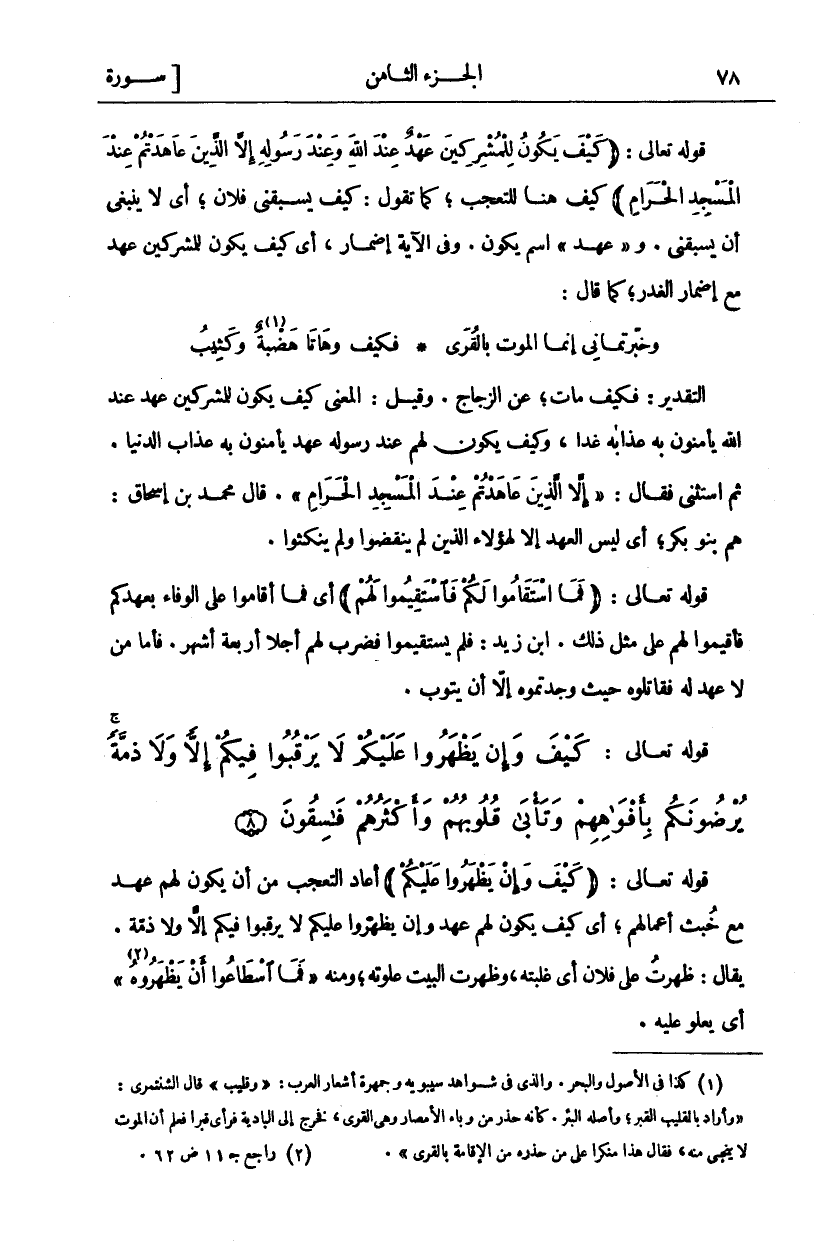 ٧٨ الجـــزء الثـامن [ ســـورة
قوله تعالى : ﴿ كَيْفَ يَكُونُ لِلْمُشْرِكِينَ عَهْدٌ عِنْدَ اللهِ وَعِنْدَ رَسُولِهِ إِلَّا الَّذِينَ عَاهَدْتُمْ عِنْدَ
الْمَسْجِدِ الْحَـرَامِ ﴾ كيف هنـا للتعجب ؛ كما تقول : كيف يسـبقنى فلان ؛ أى لا ينبغى
أن يسبقنى . و « عهـد » اسم يكون . وفى الآية إضمـار ، أى كيف يكون للمشركين عهد
مع إضمار الغدر؛ كما قال :
وخبّرتمـانِى إنمـا الموت بالقُرَى * فكيف وهَاتَا هَضْبةٌ (١) وَكَثِيبُ
التقدير : فكيف مات؛ عن الزجاج . وقيـل : المعنى كيف يكون للمشركين عهد عند
الله يأمنون به عذابَه غدا ، وكيف يكون لهم عند رسوله عهد يأمنون به عذاب الدنيا .
ثم استثنى فقـال : « إِلَّا الَّذِينَ عَاهَدْتُمْ عِنْـدَ الْمَسْجِدِ الْحَـرَامِ » . قال محمـد بن إسحاق :
هم بنو بكر؛ أى ليس العهد إلا لهؤلاء الذين لم ينقضوا ولم ينكثوا .
قوله تعـالى : ﴿ فَمَـا اسْتَقَامُوا لَكُمْ فَاسْتَقِيمُوا لَهُمْ ﴾ أى فمـا أقاموا على الوفاء بعهدكم
فأقيموا لهم على مثل ذلك . ابن زيد : فلم يستقيموا فضرب لهم أجلا أربعة أشهر . فأما من
لا عهد له فقاتلوه حيث وجدتموه إلّا أن يتوب .
قوله تعـالى : كَيْفَ وَإِن يَظْهَرُوا عَلَيْكُمْ لَا يَرْقُبُوا فِيكُمْ إِلًّا وَلَا ذِمَّةً ۚ
يُرْضُونَكُم بِأَفْوَٰهِهِمْ وَتَأْبَىٰ قُلُوبُهُمْ وَأَكْثَرُهُمْ فَـٰسِقُونَ ۝٨
قوله تعـالى : ﴿ كَيْفَ وَإِنْ يَظْهَرُوا عَلَيْكُمْ ﴾ أعاد التعجب من أن يكون لهم عهـد
مع خُبث أعمالهم ؛ أى كيف يكون لهم عهد وإن يظهروا عليكم لا يرقبوا فيكم إلًّا ولا ذمّة .
يقال : ظهرتُ على فلان أى غلبته ، وظهرت البيت علوته ؛ ومنه « فَمَـا ٱسْطَاعُوا أَنْ يَظْهَرُوهُ (٢) »
أى يعلو عليه .
(١) كذا فى الأصول والبحر . والذى فى شـواهد سيبويه وجمهرة أشعار العرب : « وقليب » قال الشنتمرى :
«وأراد بالقليب القبر ؛ وأصله البئر . كأنه حذر من وباء الأمصار وهى القرى ، فخرج إلى البادية فرأى قبرا فعلم أن الموت
لا ينجى منه ، فقال هذا منكرا على من حذره من الإقامة بالقرى » . (٢) راجع جـ ١١ ص ٦٢ .